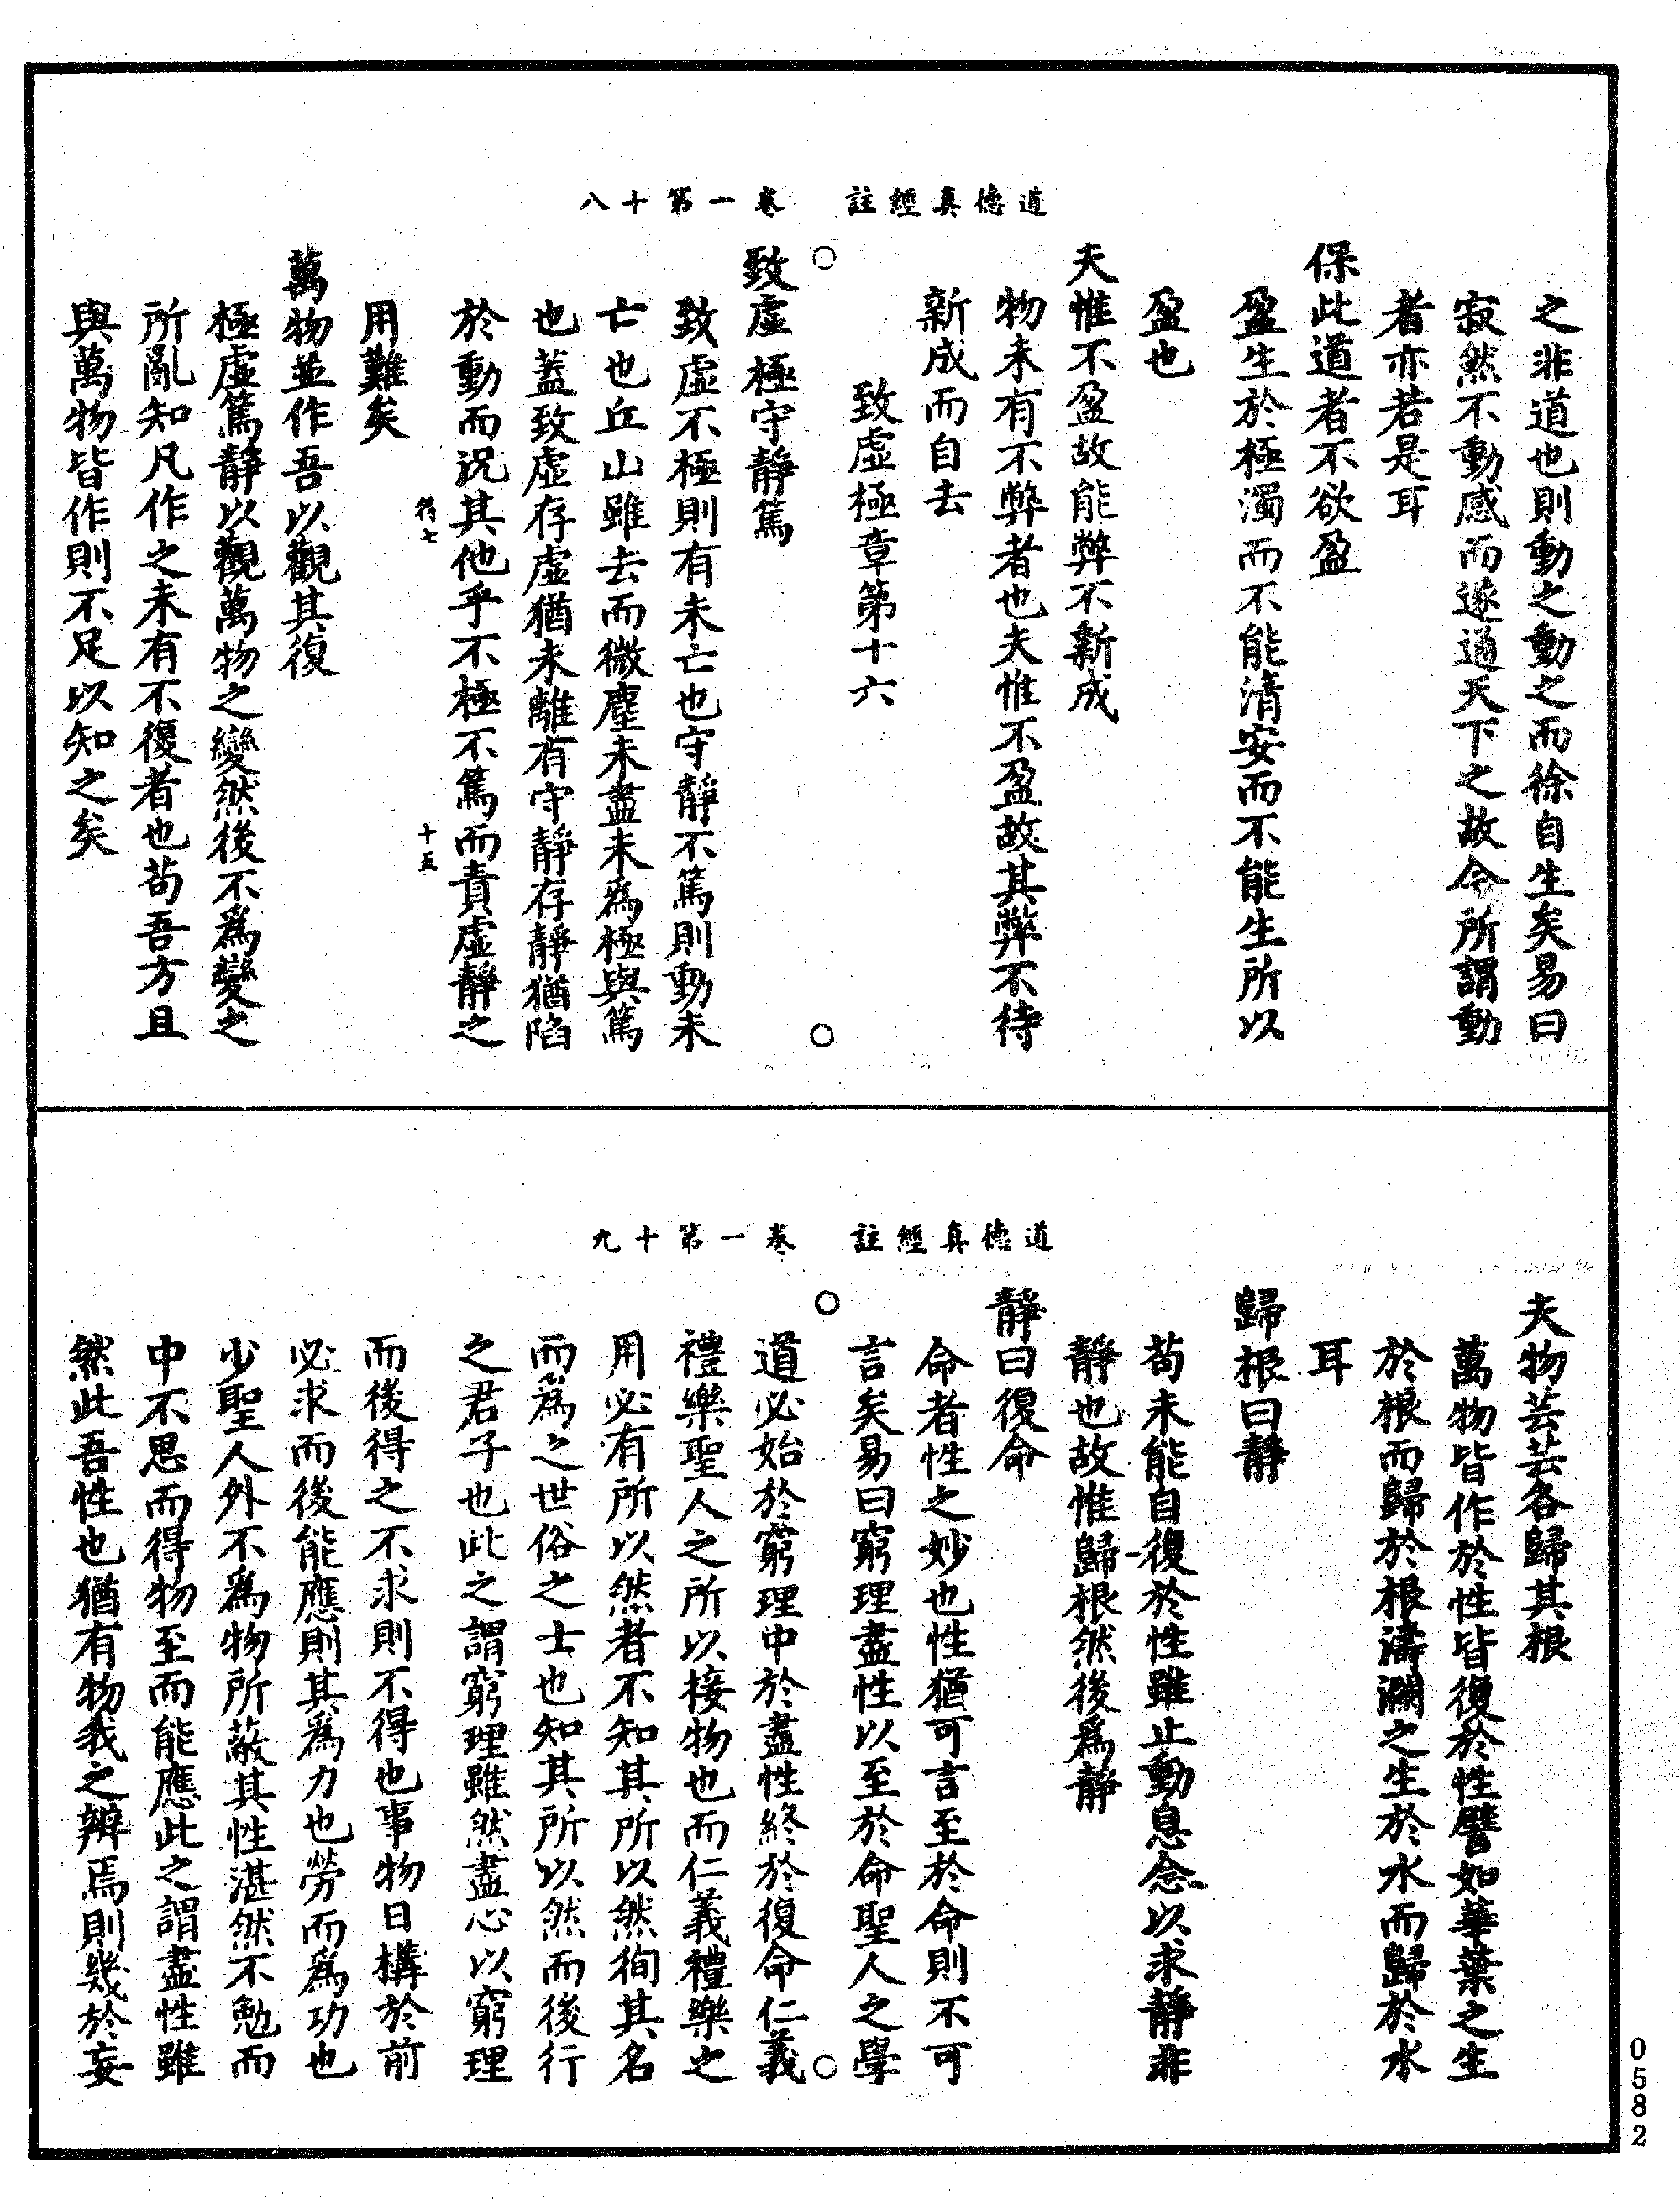 道德真經註 卷一第十八
之非道也則動之動之而徐自生矣易曰
寂然不動感而遂通天下之故今所謂動
者亦若是耳
保此道者不欲盈
盈生於極濁而不能清安而不能生所以
盈也
夫惟不盈故能弊不新成
物未有不弊者也夫惟不盈故其弊不待
新成而自去
致虛極章第十六
致虛極守靜篤
致虛不極則有未亡也守靜不篤則動未
亡也丘山雖去而微塵未盡未為極與篤
也蓋致虛存虛猶未離有守靜存靜猶陷
於動而況其他乎不極不篤而責虛靜之
七 十五
用難矣
萬物並作吾以觀其復
極虛篤靜以觀萬物之變然後不為變之
所亂知凡作之未有不復者也苟吾方且
與萬物皆作則不足以知之矣
道德真經註 卷一第十九
夫物芸芸各歸其根
萬物皆作於性皆復於性譬如華葉之生
於根而歸於根濤瀾之生於水而歸於水
耳
歸根曰靜
苟未能自復於性雖止動息念以求靜非
靜也故惟歸根然後為靜
靜曰復命
命者性之妙也性猶可言至於命則不可
言矣易曰窮理盡性以至於命聖人之學
道必始於窮理中於盡性終於復命仁義
禮樂聖人之所以接物也而仁義禮樂之
用必有所以然者不知其所以然徇其名
而為之世俗之士也知其所以然而後行
之君子也此之謂窮理雖然盡心以窮理
而後得之不求則不得也事物日構於前
必求而後能應則其為力也勞而為功也
少聖人外不為物所蔽其性湛然不勉而
中不思而得物至而能應此之謂盡性雖
然此吾性也猶有物我之辨焉則幾於妄
0582